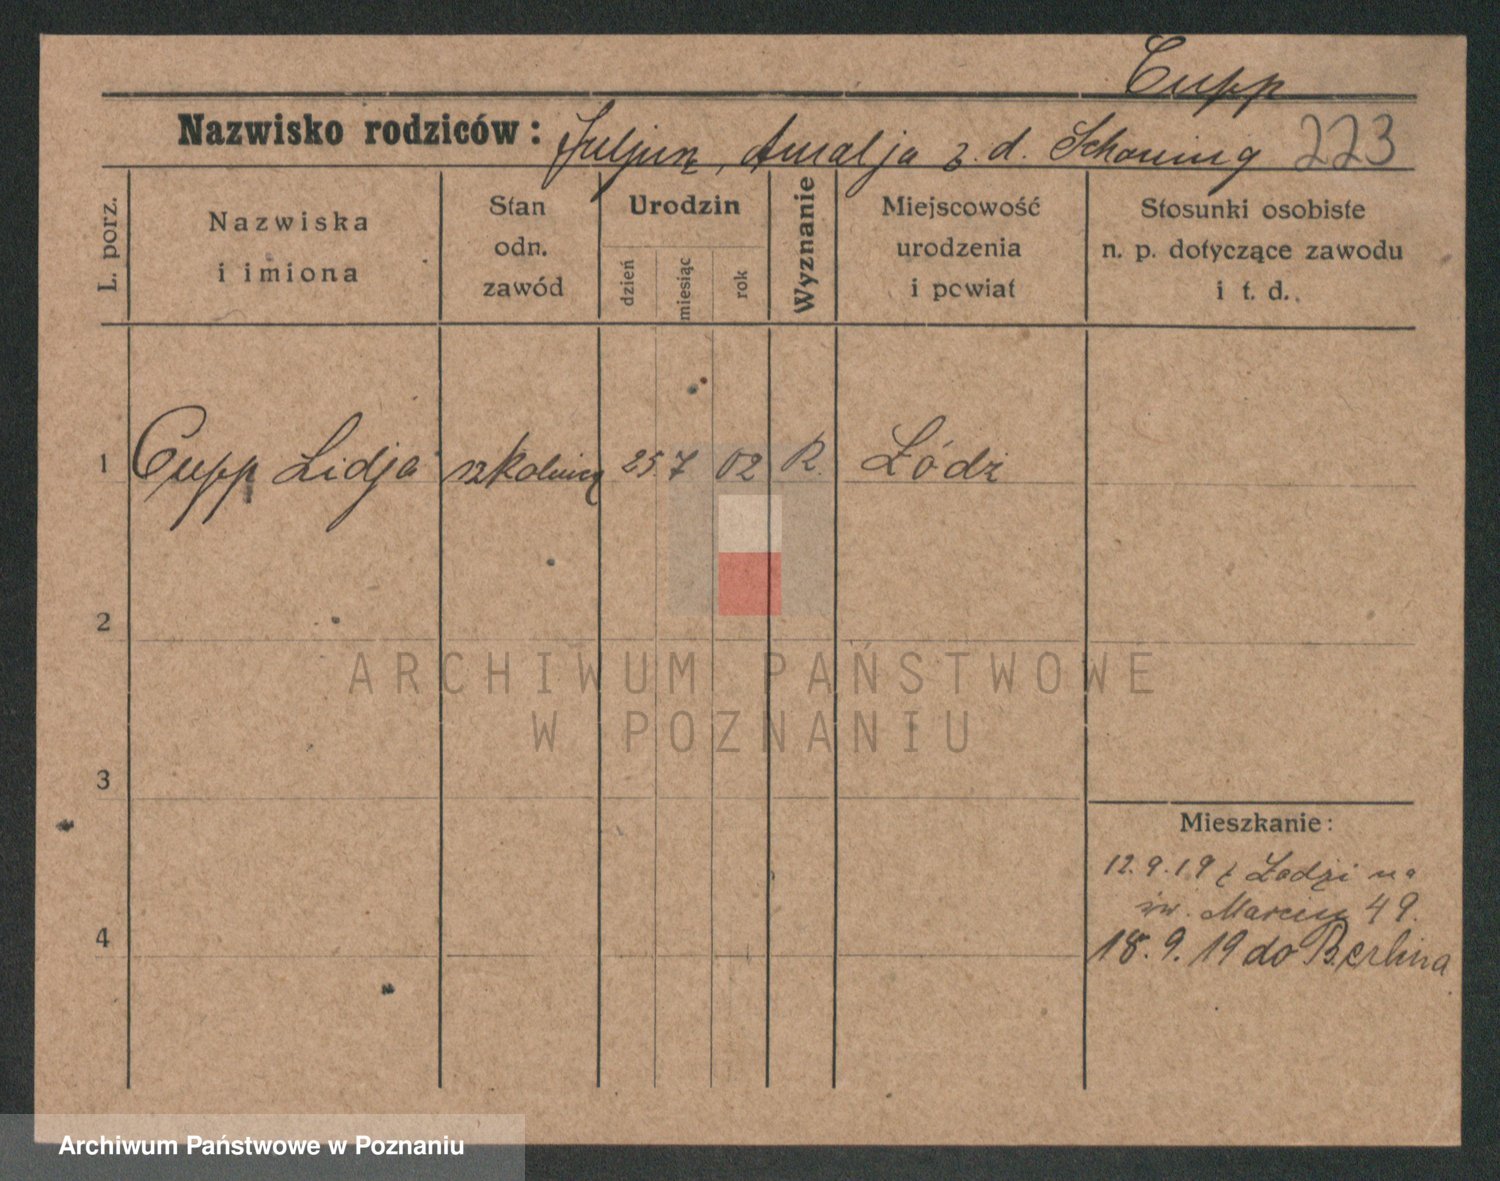 Cupp
Nazwisko rodziców: Juljusz, Amalja z. d. Schoning 223
L. porz.
Nazwiska
i imiona
Stan
odn.
zawód
Urodzin
dzień
miesiąc
rok
Wyznanie
Miejscowość
urodzenia
i powiat
Stosunki osobiste
n. p. dotyczące zawodu
i t. d.
1 Cupp Lidja szkolnicą 25. 7 02 R. Łódź
2
3
4
ARCHIWUM PAŃSTWOWE
W POZNANIU
Mieszkanie:
12.9.19 z Łodzi na
św. Marcin 49.
18.9.19 do Berlina
Archiwum Państwowe w Poznaniu